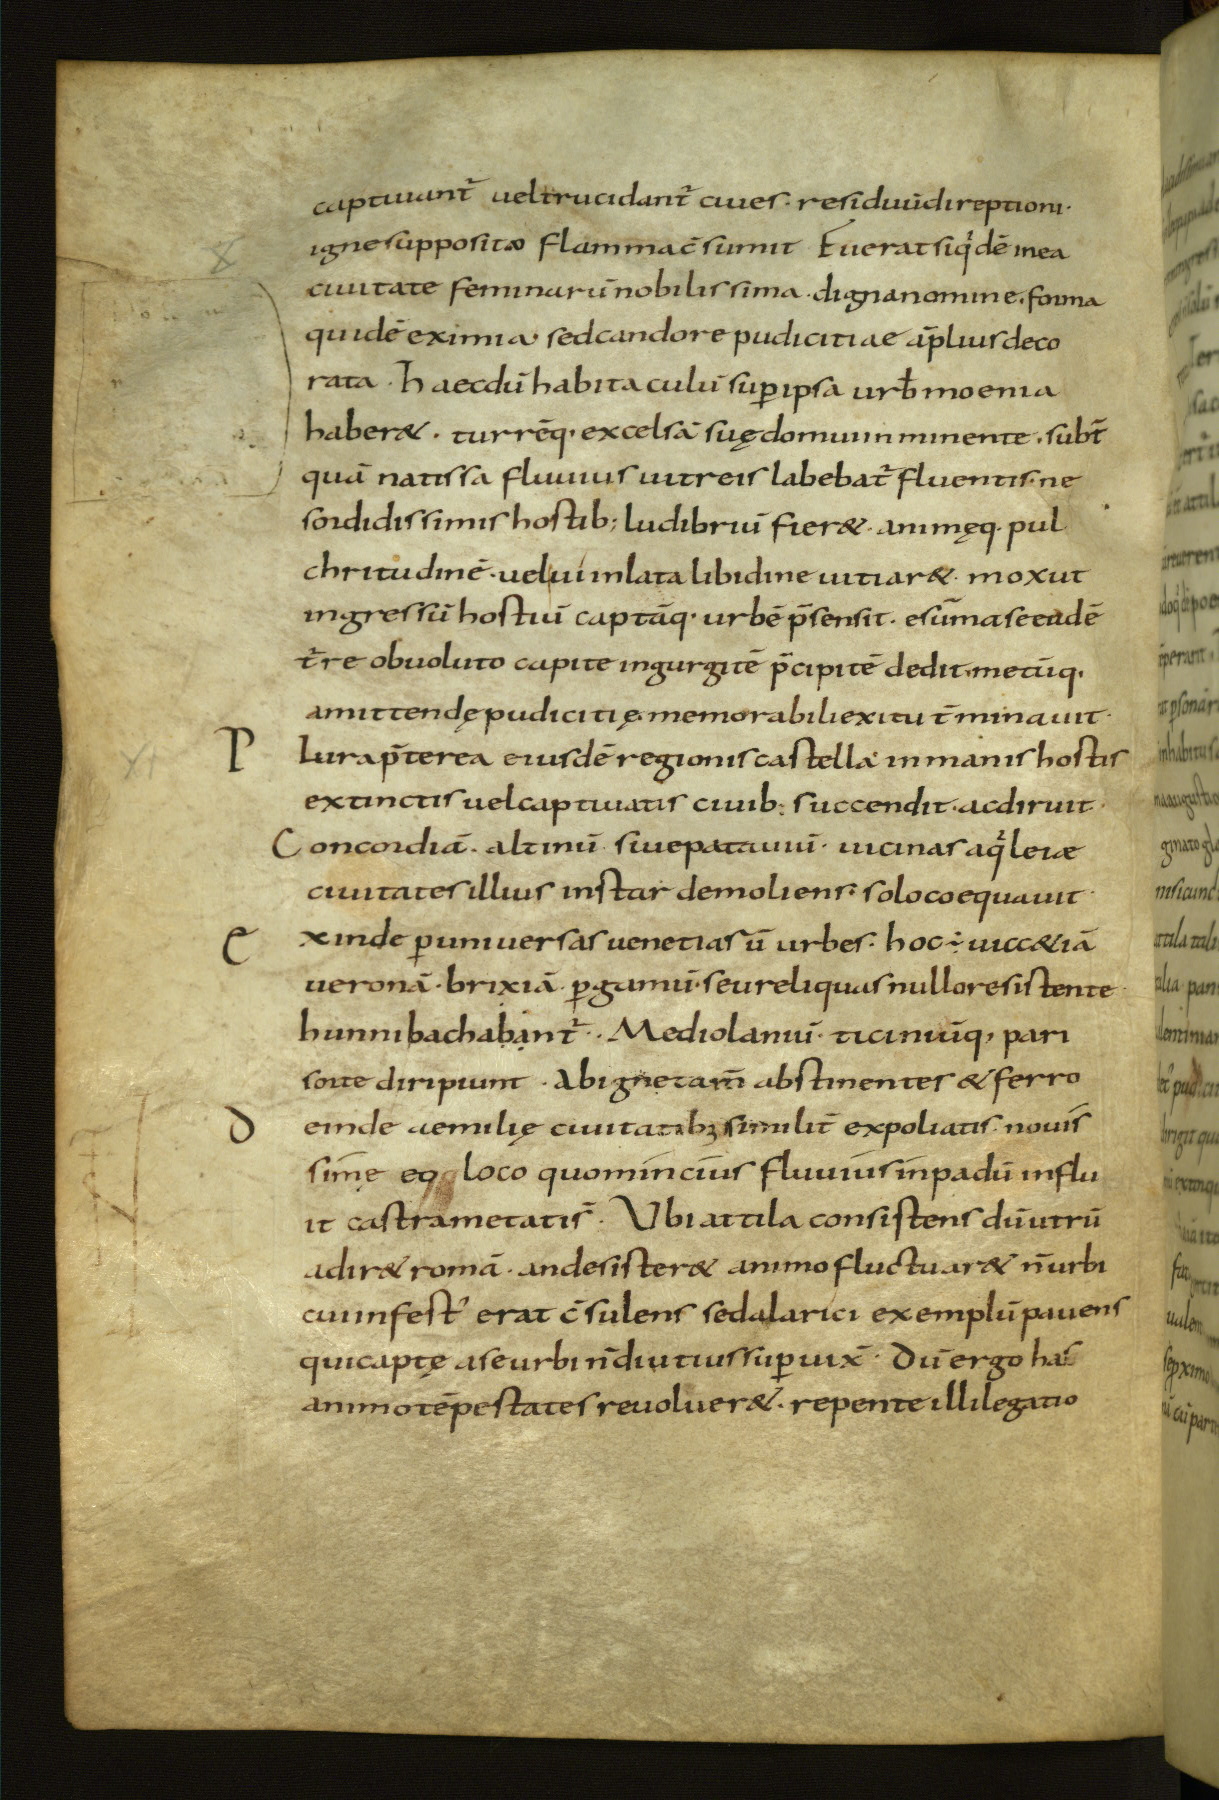 captiuant᷑ uel trucidant᷑ ciues · residuū direptioni ·
igne supposito flamma c̄sumit Fuerat siq́dē in ea
ciuitate feminarū nobilissima · digna nomine · forma
quidē eximia · sed candore pudicitiae āplius deco
rata · Haec dū habitaculū sup̱ ipsa urb̄ moenia
haber& · turrēq· excelsā suę domui inminente · subt̄
quā natissa fluuius uitreis labebat᷑ fluentis · ne
sordidissimis hostib; ludibriū fier& · animęq· pul
chritudinē · uelui inlata libidine uitiar& · mox ut
ingressū hostiū captāq· urbē p̄sensit · e sūma se eadē
t᷑re obuoluto capite in gurgitē p̄cipitē dedit · metūq·
amittendę pudicitię memorabili exitu t̄minauit ·
Plura p̄terea eiusdē regionis castella inmanis hostis
extinctis uel captiuatis ciuib; succendit · ac diruit ·
Concordiā · altinū · siue patauiū · uicinas aq́leiæ
ciuitates illius instar demoliens · solo coequauit ·
Exinde p̱ uniuersas uenetiasū urbes · hoc ÷ uicc&iā
ueronā · brixiā · p̱gamū · seu reliquas nullo resistente
hunni bachabant᷑ · Mediolaniū · ticinūq, pari
sorte diripiunt · Ab igne tam̄ abstinentes & ferro
Deinde aemilię ciuitatib; similit̄ expoliatis · nouis
sime eo loco quo mincius fluuius in padū influ
it castrametatis · Ubi attila consistens dū utrū
adir& romā · an desister& animo fluctuar& n̄ urbi
cui infest' erat c̄sulens sed alarici exemplū pauens
qui captę a se urbi n̄ diutius sup̱uix̄ · Dū ergo has
animo tēpestates reuoluer& · repente illi legatio